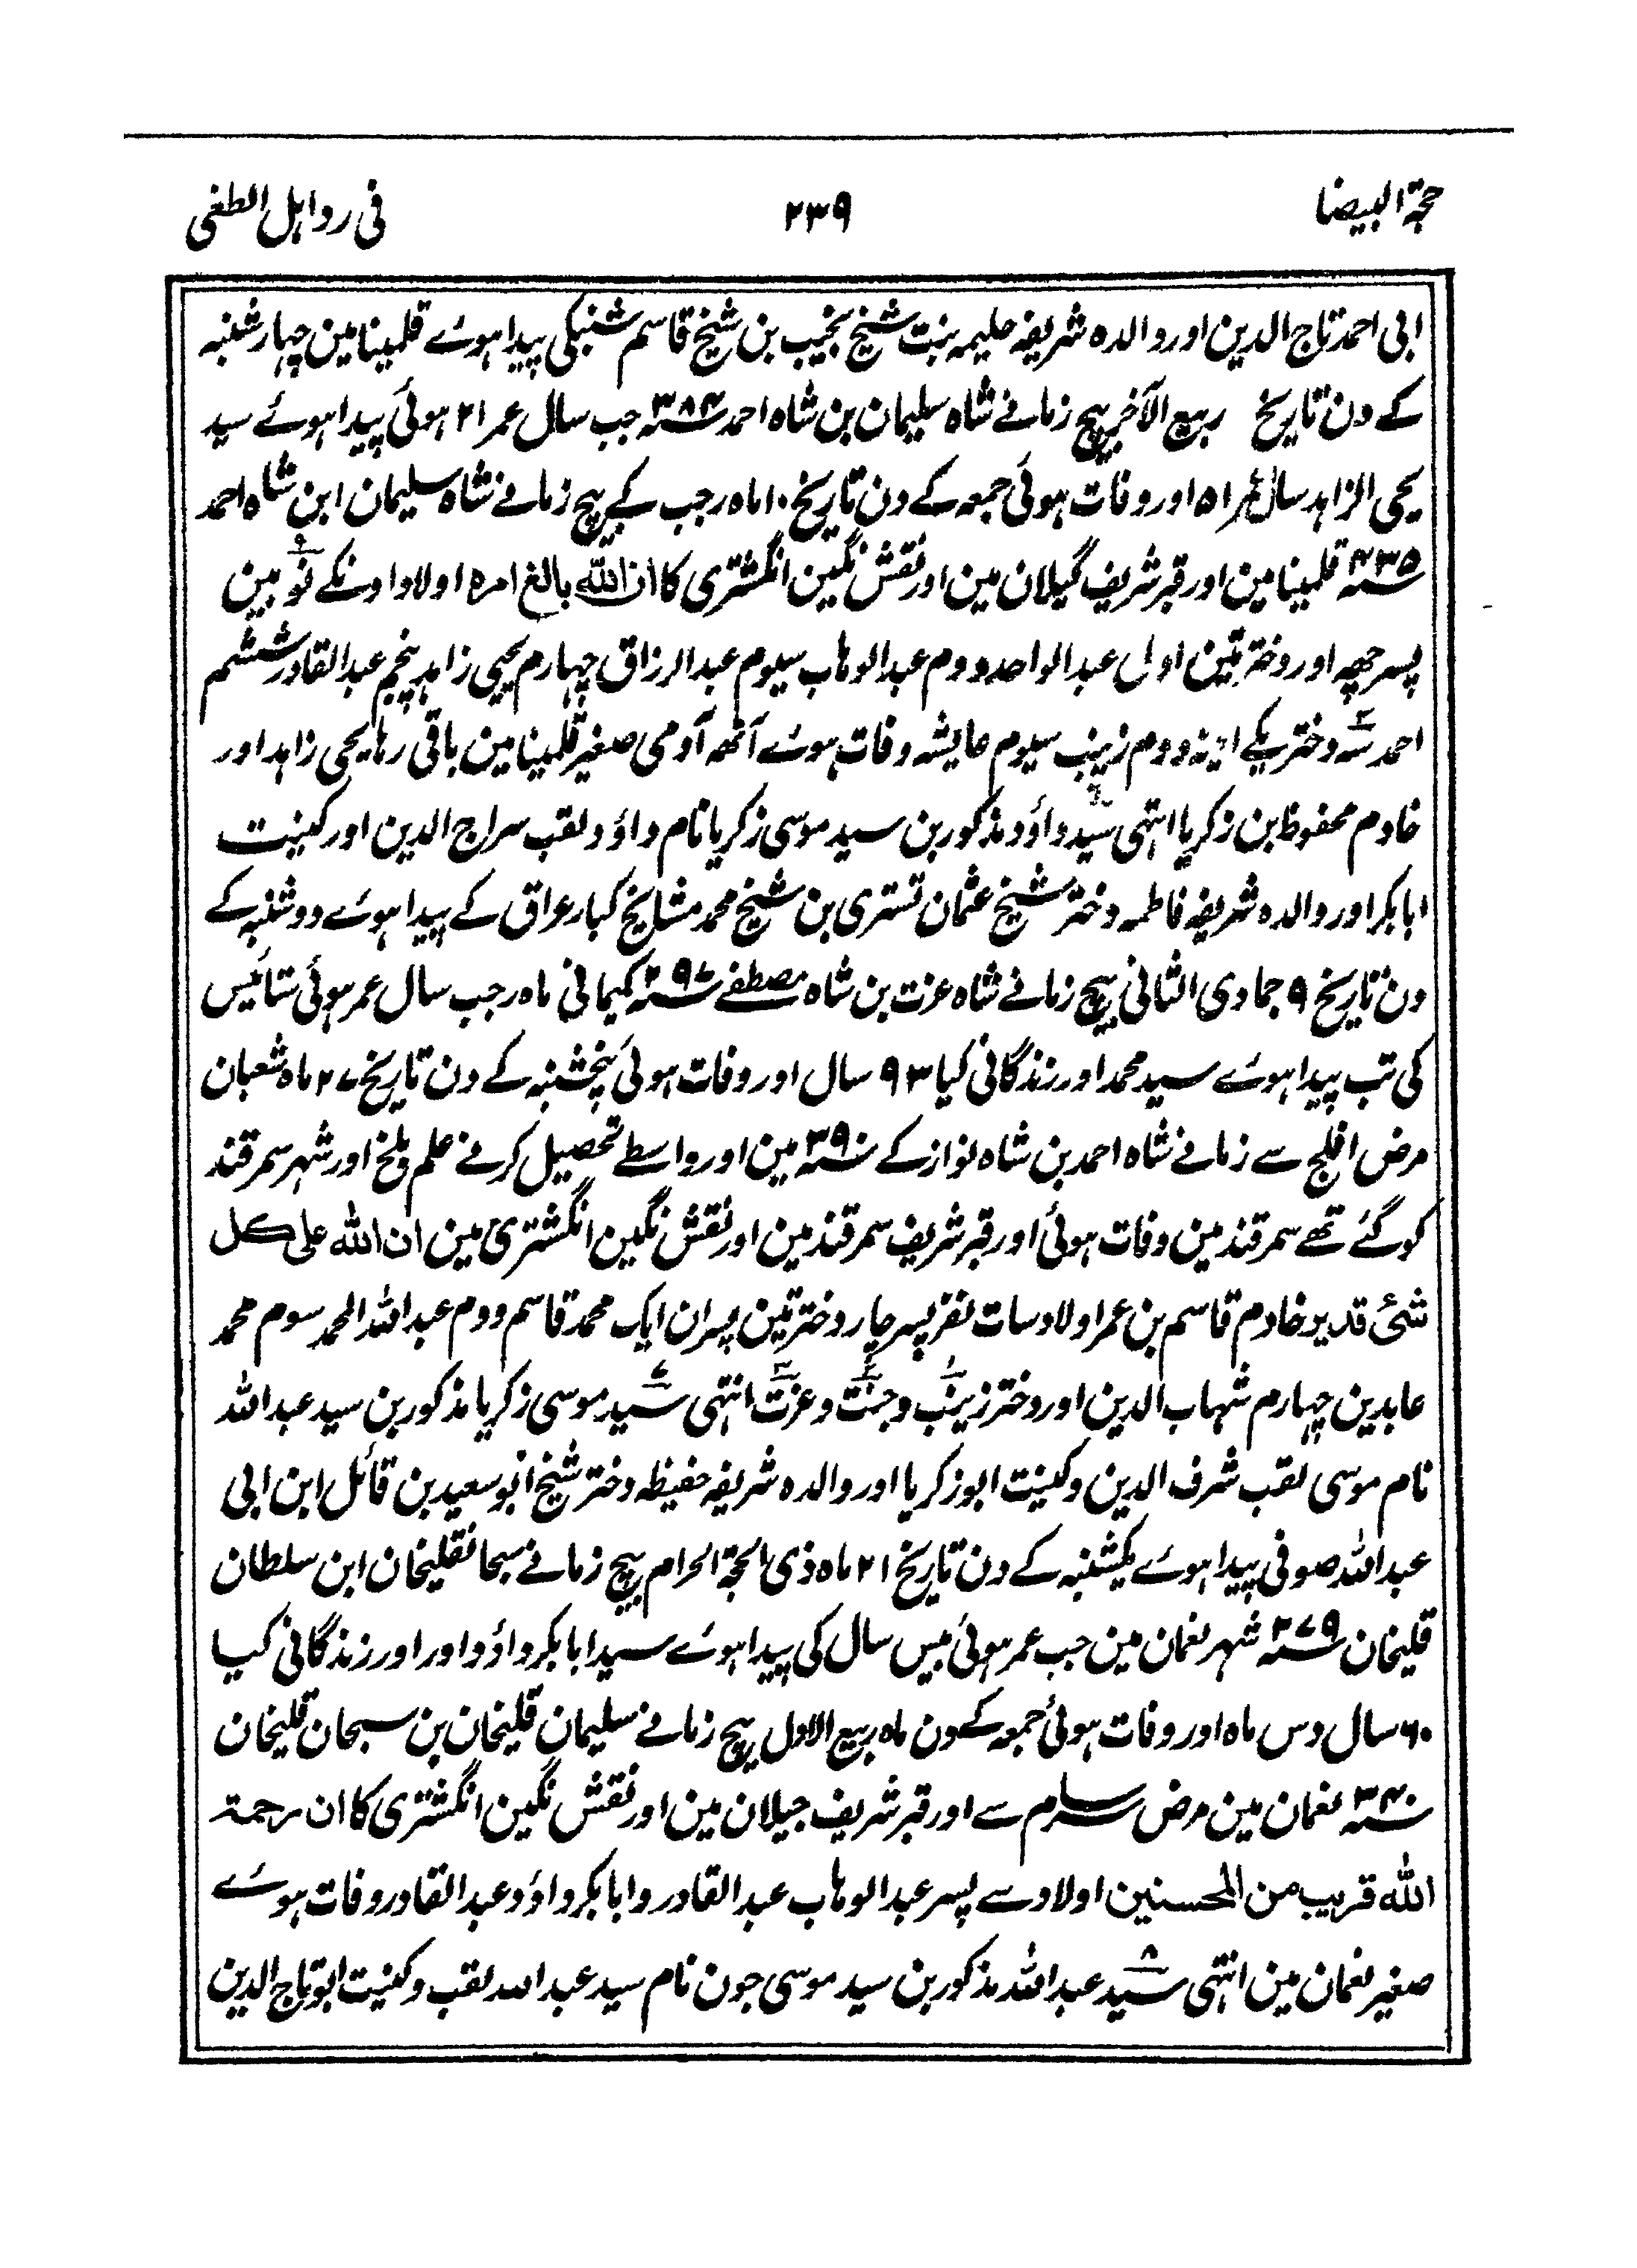 حجۃ البیضا ۲۳۹ فی رد اہل الطغی
ابی احمد تاج الدین اور والدہ شریفہ حلیمہ بنت شیخ نجیب بن شیخ قاسم شنبکی پیدا ہوے قلمینا مین چہار شنبہ
کے دن تاریخ ربیع الآخر بیچ زمانے شاہ سلیمان بن شاہ احمد ۳۸۴ سنہ جب سال عمر ۲۱ ہوئی پیدا ہوئے سید
یحیی الزاہد سال عمر ۵۱ اور وفات ہوئی جمعہ کے دن تاریخ ۱۰ ماہ رجب کے بیچ زمانے شاہ سلیمان ابن شاہ احمد
۴۳۵ سنہ قلمینا مین اور قبر شریف گیلان مین اور نقش نگین انگشتری کا ان الله بالغ امرہ اولاد اونکے نو ۹ ہین
پسر چھہ اور دختر تین اول عبد الواحد دوم عبد الوہاب سیوم عبد الرزاق چہارم یحیی زاہد پنجم عبد القادر ششم
احمد سہ ۳ دختر یکے دوم زینب سیوم عایشہ وفات ہوے آٹھہ آدمی صغیر قلمینا مین باقی رہا یحیی زاہد اور
خادم محفوظ بن زکریا انتہی سید داؤد مذکور بن سید موسی زکریا نام داؤد لقب سراج الدین اور کنیت
ابابکر اور والدہ شریفہ فاطمہ دختر شیخ عثمان تستری بن شیخ محمد مشایخ کبار عراق کے پیدا ہوے دوشنبہ کے
دن تاریخ ۹ جمادی الثانی بیچ زمانے شاہ عزت بن شاہ مصطفے ۲۹۷ سنہ کیمانی ماہ رجب سال عمر ہوئی ستائیس
کی تب پیدا ہوے سید محمد اور زندگانی کیا ۹۳ سال اور وفات ہوئی پنجشنبہ کے دن تاریخ ۲۷ ماہ شعبان
مرض افلج سے زمانے شاہ احمد بن شاہ نواز کے ۳۹۰ سنہ مین اور واسطے تحصیل کرنے علم بلخ اور شہر سمرقند
کو گئے تھے سمرقند مین وفات ہوئی اور قبر شریف سمرقند مین اور نقش نگین انگشتری مین ان الله علی کل
شئ قدیر خادم قاسم بن عمر اولاد سات نفر پسر چار دختر تین پسران ایک محمد قاسم دوم عبد الله المحمد سوم محمد
عابدین چہارم شہاب الدین اور دختر زینب ۱ و جنت ۲ و عزت ۳ انتہی سید ۷ موسی زکریا مذکور بن سید عبد الله
نام موسی لقب شرف الدین و کنیت ابو زکریا اور والدہ شریفہ حفیظہ دختر شیخ ابو سعید بن قائل ابن ابی
عبد الله صوفی پیدا ہوے یکشنبہ کے دن تاریخ ۲۱ ماہ ذی الحجۃ الحرام بیچ زمانے سبحانقلیخان ابن سلطان
قلیخان ۲۷۹ سنہ شہر نعمان مین جب عمر ہوئی بیس سال کی پیدا ہوے سید ابابکر داؤد اور اور زندگانی کیا
۶۰ سال دس ماہ اور وفات ہوئی جمعہ کے دن ماہ ربیع الاول بیچ زمانے سلیمان قلیخان بن سبحان قلیخان
۳۴۰ سنہ نعمان مین مرض سرسام سے اور قبر شریف جیلان مین اور نقش نگین انگشتری کا ان رحمۃ
الله قریب من المحسنین اولاد سے پسر عبد الوہاب عبد القادر و ابابکر داؤد عبد القادر وفات ہوے
صغیر نعمان مین انتہی سید ۸ عبد الله مذکور بن سید موسی جون نام سید عبد الله لقب و کنیت ابو تاج الدین